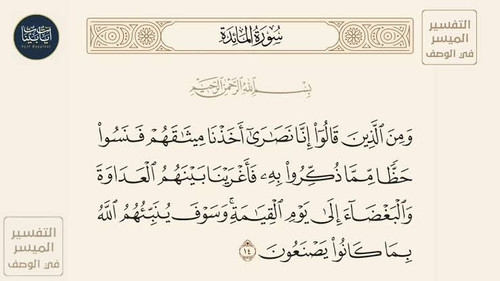 آيات بينات
سُورَةُ المَائِدَة
التفسير
الميسر
في الوصف
بِسْمِ اللَّهِ الرَّحْمَٰنِ الرَّحِيمِ
وَمِنَ ٱلَّذِينَ قَالُوٓا۟ إِنَّا نَصَٰرَىٰٓ أَخَذْنَا مِيثَٰقَهُمْ فَنَسُوا۟
حَظًّا مِّمَّا ذُكِّرُوا۟ بِهِۦ فَأَغْرَيْنَا بَيْنَهُمُ ٱلْعَدَاوَةَ
وَٱلْبَغْضَآءَ إِلَىٰ يَوْمِ ٱلْقِيَٰمَةِ ۚ وَسَوْفَ يُنَبِّئُهُمُ ٱللَّهُ
بِمَا كَانُوا۟ يَصْنَعُونَ ١٤
التفسير
الميسر
في الوصف